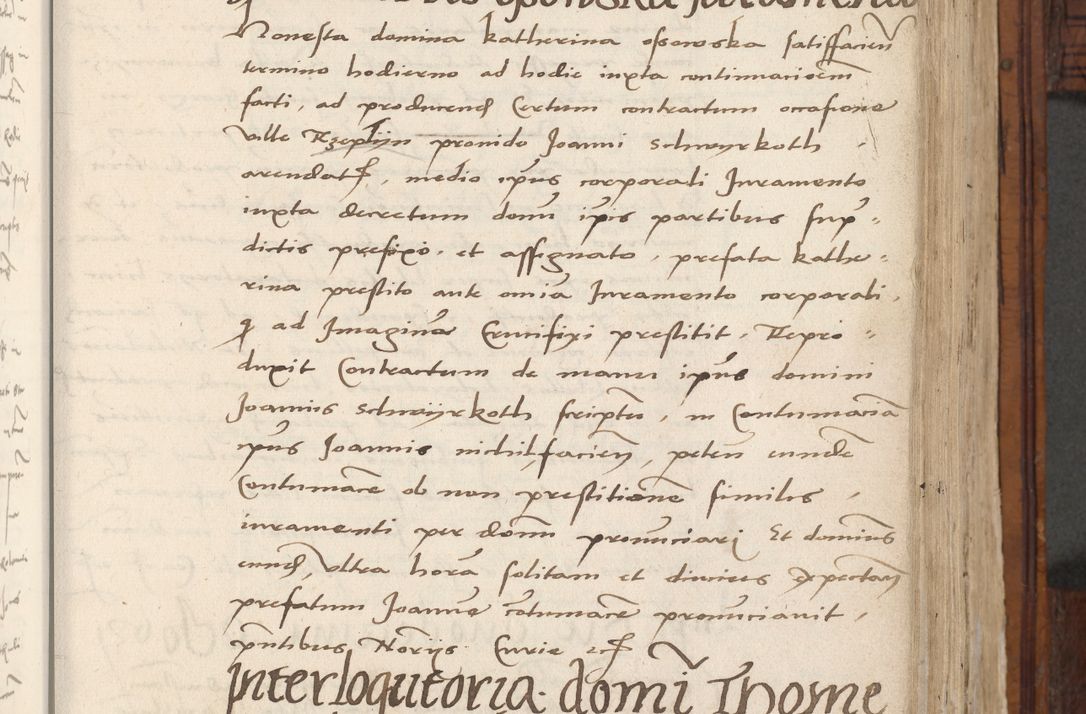 Honesta domina Katherina ossowska satisfaciens
termino hodierno ad hodie iuxta continuacionem
facti, ad producend Certum contractum occasione
ville Rzeplijn provido Joanni Schwyrkoth
arendat, medio ipsius corporali Juramento
iuxta decretum domini ipsis partibus sup
dictis prefixo, et assignato, prefata kathe
rina prestito ante omnia Juramento corporali,
ad Imaginem Crucifixi prestitit, Repro
duxit Contractum de manu ipsius domini
Joannis Schwijrkoth scriptum, in Contumaciam
ipsius Joannis nichil faciens, petens eundem
Contumacem ob non prestitionem similis
iuramenti per dominum pronunciari Et dominus
eund, ultra horam solitam et diucius expectans
prefatum Joannem contumacem pronunciavit,
pntibus Notariis Curie
Interloqutoria domi Thome